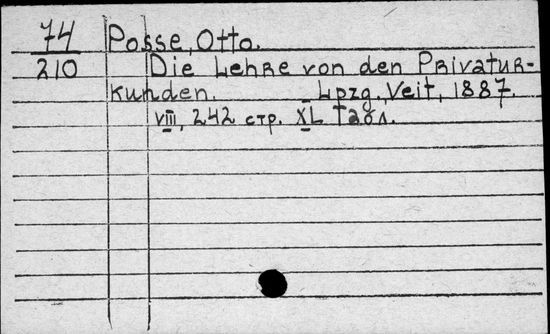 74 Posse, Otto.
210 Die Lehre von den Privatur-
kunden. Lpzg., Veit, 1887.
VIII, 242 стр. XL табл.